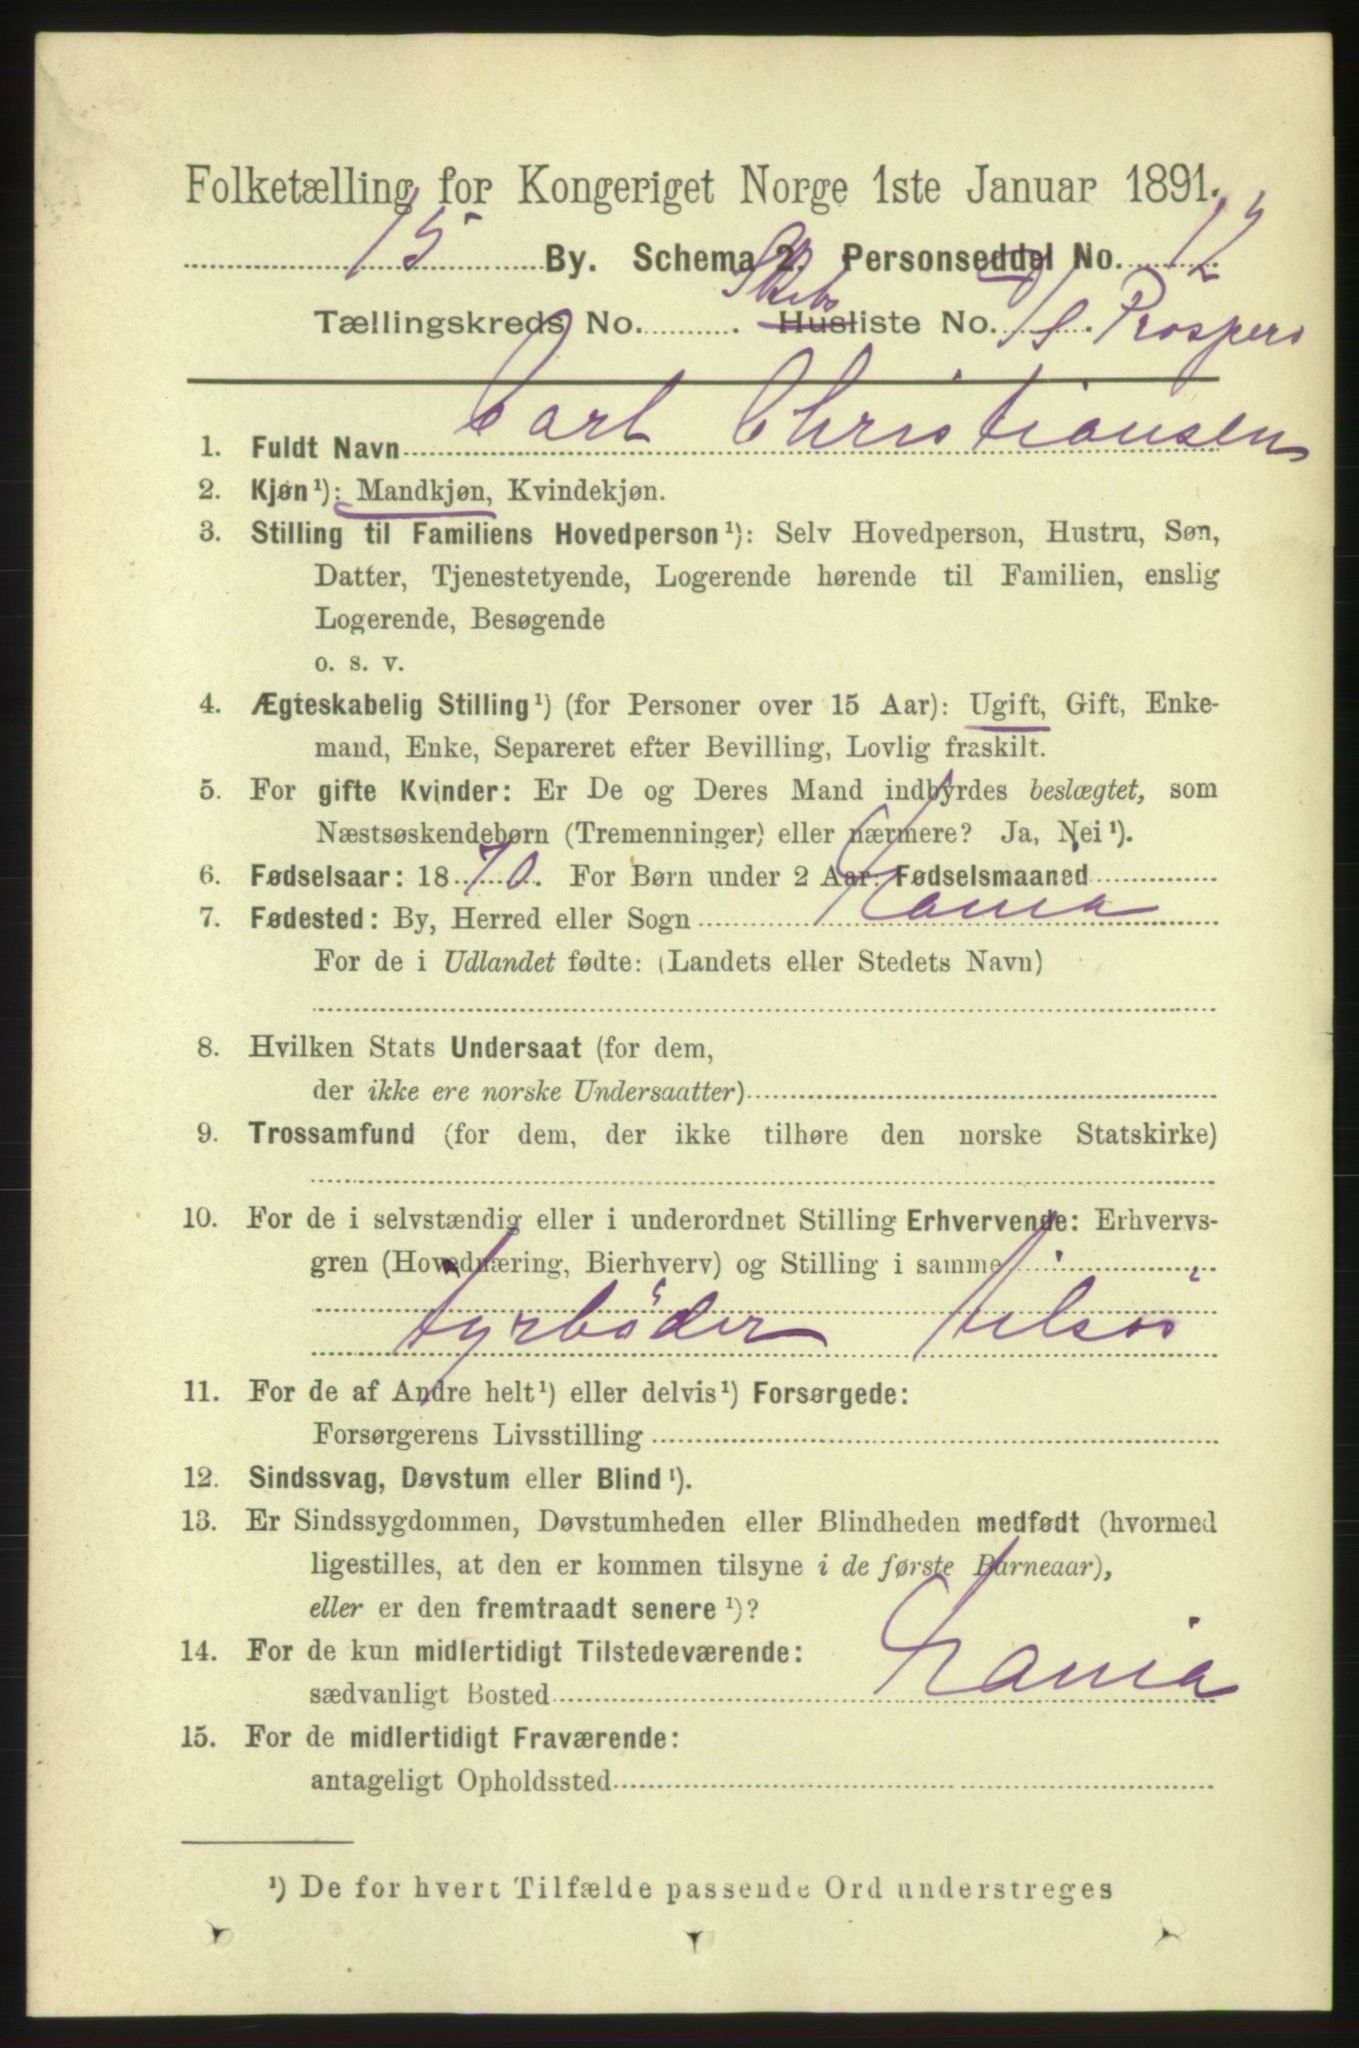 Folketælling for Kongeriget Norge 1ste Januar 1891.
15 By. Schema 2. Personseddel No. 12
Tællingskreds No. . Skibs Husliste No. D/S . Prospero
1. Fuldt Navn Carl Christiansen
2. Kjøn¹): Mandkjøn, Kvindekjøn.
3. Stilling til Familiens Hovedperson¹): Selv Hovedperson, Hustru, Søn,
Datter, Tjenestetyende, Logerende hørende til Familien, enslig
Logerende, Besøgende
o. s. v.
4. Ægteskabelig Stilling¹) (for Personer over 15 Aar): Ugift, Gift, Enke-
mand, Enke, Separeret efter Bevilling, Lovlig fraskilt.
5. For gifte Kvinder: Er De og Deres Mand indbyrdes beslægtet, som
Næstsøskendebørn (Tremenninger) eller nærmere? Ja, Nei¹).
6. Fødselsaar: 1870. For Børn under 2 Aar: Fødselsmaaned
7. Fødested: By, Herred eller Sogn Xania
For de i Udlandet fødte: (Landets eller Stedets Navn)
8. Hvilken Stats Undersaat (for dem,
der ikke ere norske Undersaatter)
9. Trossamfund (for dem, der ikke tilhøre den norske Statskirke)
10. For de i selvstændig eller i underordnet Stilling Erhvervende: Erhvervs-
gren (Hovednæring, Bierhverv) og Stilling i samme
fyrböder tilsös
11. For de af Andre helt¹) eller delvis¹) Forsørgede:
Forsørgerens Livsstilling
12. Sindssvag, Døvstum eller Blind¹).
13. Er Sindssygdommen, Døvstumheden eller Blindheden medfødt (hvormed
ligestilles, at den er kommen tilsyne i de første Barneaar),
eller er den fremtraadt senere¹)?
14. For de kun midlertidigt Tilstedeværende:
sædvanligt Bosted Xania
15. For de midlertidigt Fraværende:
antageligt Opholdssted
¹) De for hvert Tilfælde passende Ord understreges